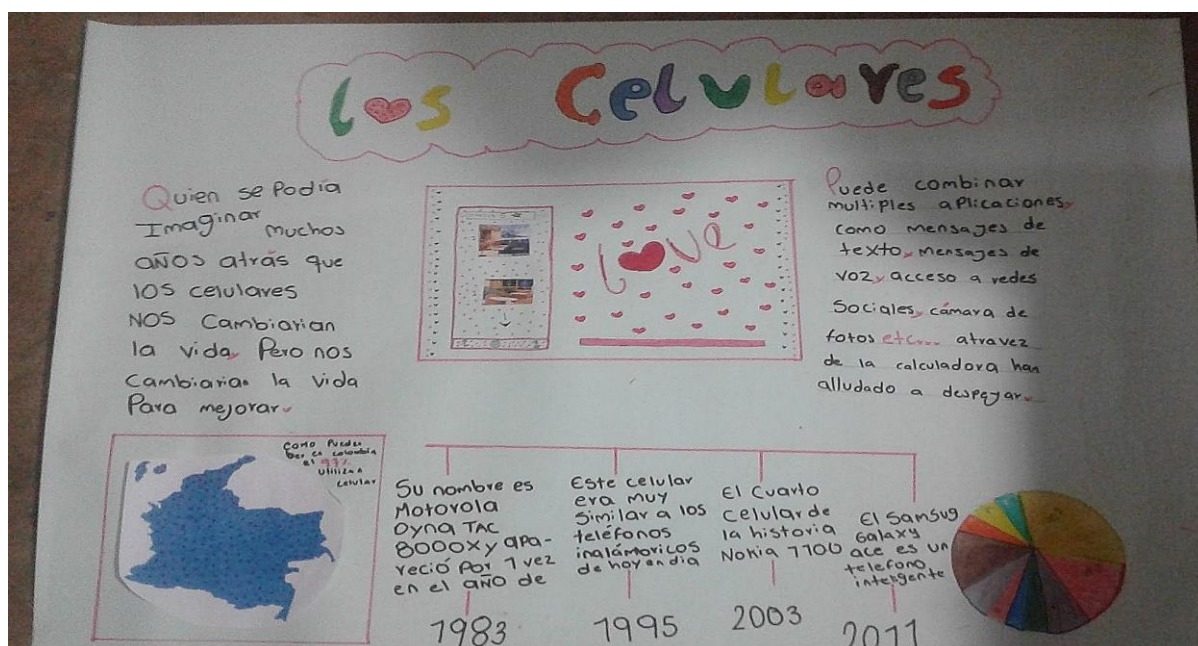 los Celulares
Quien se Podía
Imaginar muchos
años atrás que
los celulares
NOS Cambiarian
la vida, Pero nos
Cambiarian la vida
Para mejorar.
love
Puede combinar
multiples aplicaciones,
como mensajes de
texto, mensajes de
voz, acceso a redes
Sociales, cámara de
fotos etc... atravez
de la calculadora han
alludado a despejar.
como Puedes
ber en colombia
el 97%
Utilizan
celular
Su nombre es
Motorola
Dyna TAC
8000X y apa-
reció Por 1 vez
en el año de
1983
Este celular
era muy
Similar a los
teléfonos
inalámoricos
de hoy en dia
1995
El Cuarto
Celular de
la historia
Nokia 1100
2003
El Samsug
Galaxy
ace es un
telefono
inteligente
2011